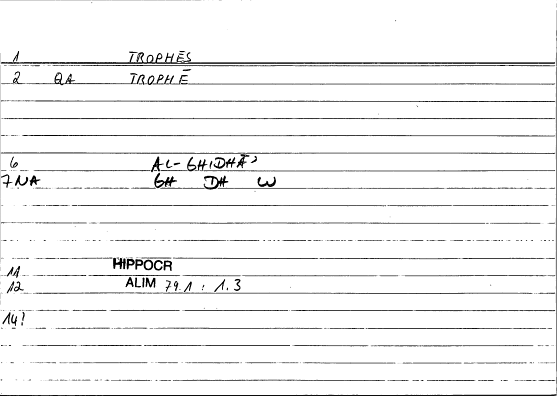 1 TROPHĒS
2 QA TROPHĒ
6 AL-GHIDHĀʾ
7 NA GH DH W
11 HIPPOCR
12 ALIM 79.1 : 1.3
14!